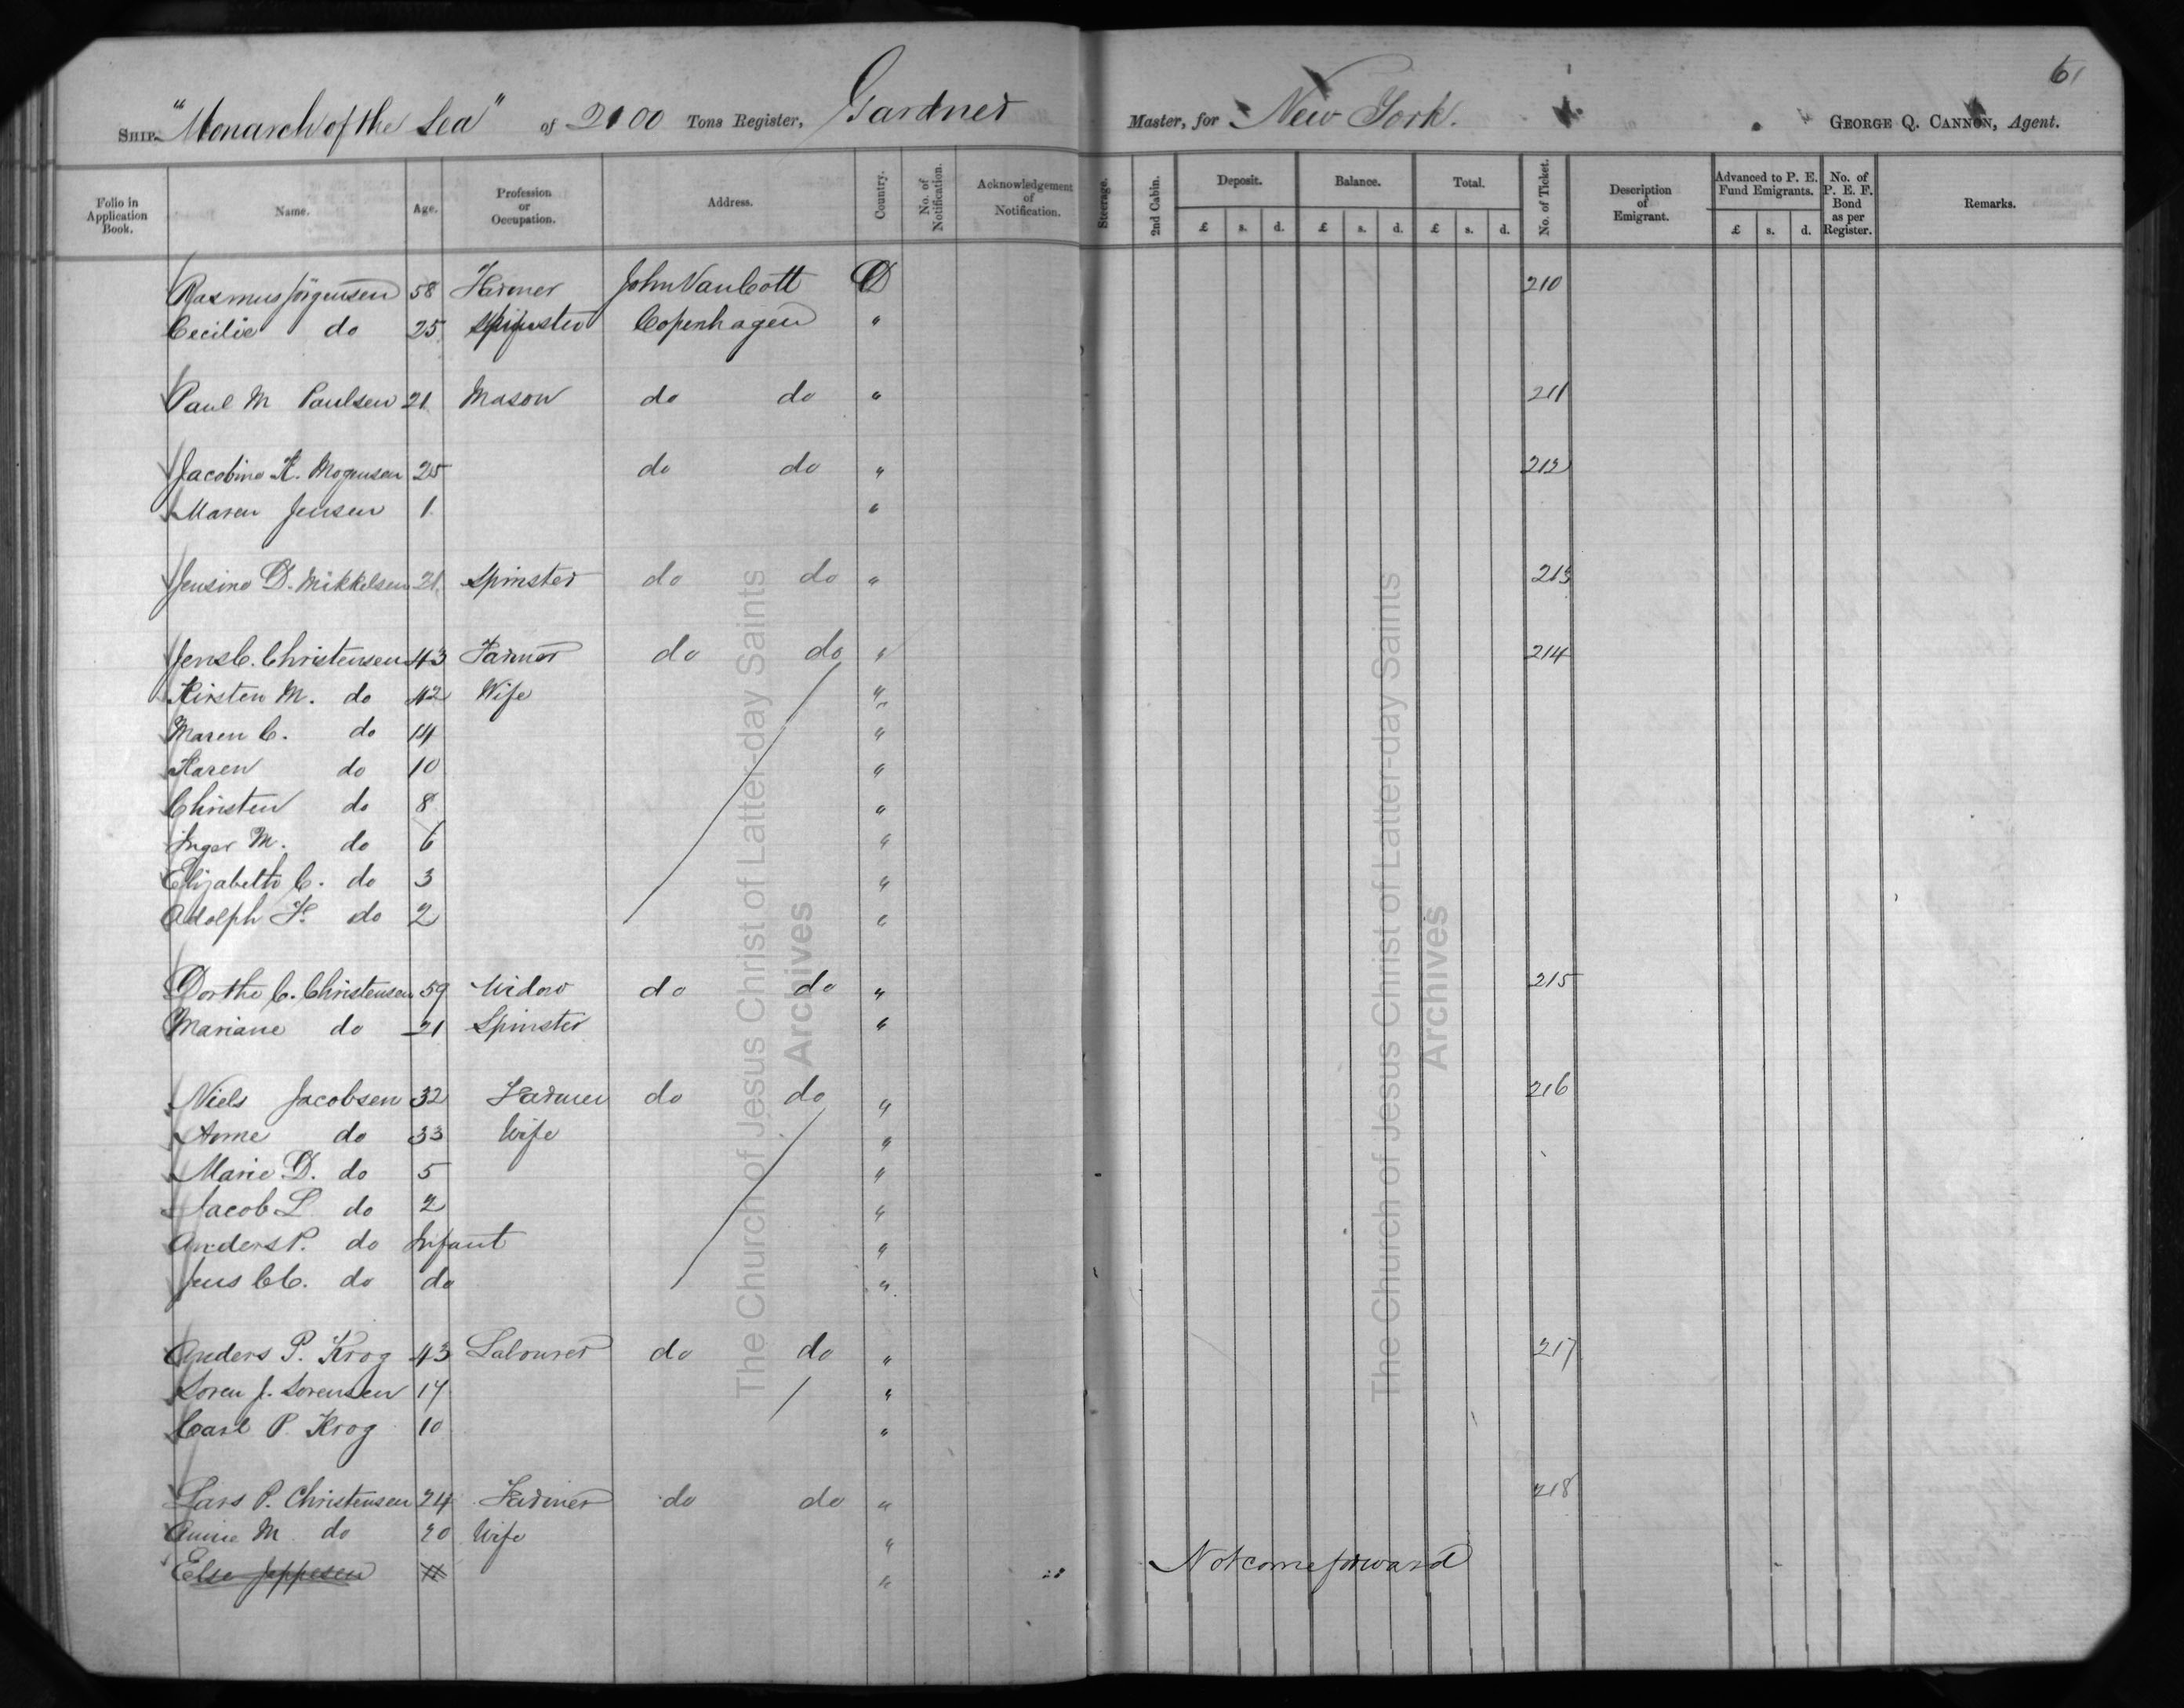 61
Ship "Monarch of the Sea" of 2100 Tons Register, Gardner Master, for New York. George Q. Cannon, Agent.
Folio in Application Book. Name. Age. Profession or Occupation. Address. Country. No. of Notification. Acknowledgement of Notification. Steerage. 2nd Cabin. Deposit. Balance. Total. No. of Ticket. Description of Emigrant. Advanced to P. E. Fund Emigrants. No. of P. E. F. Bond as per Register. Remarks.
£ s. d. £ s. d. £ s. d. £ s. d.
Rasmus Jörgensen 58 Farmer John Van Cott D 210
Cecilie do 25 Spinster Copenhagen "
Paul M Paulsen 21 Mason do do " 211
Jacobine K. Mogensen 25 do do " 212
Maren Jensen 1 "
Jensine D. Mikkelsen 21 Spinster do do " 213
Jens C. Christensen 43 Farmer do do " 214
Kirsten M. do 42 Wife "
Maren C. do 14 "
Karen do 10 "
Christen do 8 "
Inger M. do 6 "
Elizabeth C. do 3 "
Adolph F. do 2 "
Dorthe C. Christensen 59 Widow do do " 215
Mariane do 21 Spinster "
Niels Jacobsen 32 Farmer do do " 216
Anne do 33 Wife "
Marie D. do 5 "
Jacob L do 2 "
Anders P. do Infant "
Jens C C. do do "
Anders P. Krog 43 Labourer do do " 217
Soren J. Sorensen 14 "
Carl P. Krog 10 "
Lars P. Christensen 24 Farmer do do " 218
Annie M do 20 Wife "
Else Jeppesen " Not come forward
The Church of Jesus Christ of Latter-day Saints
Archives
The Church of Jesus Christ of Latter-day Saints
Archives